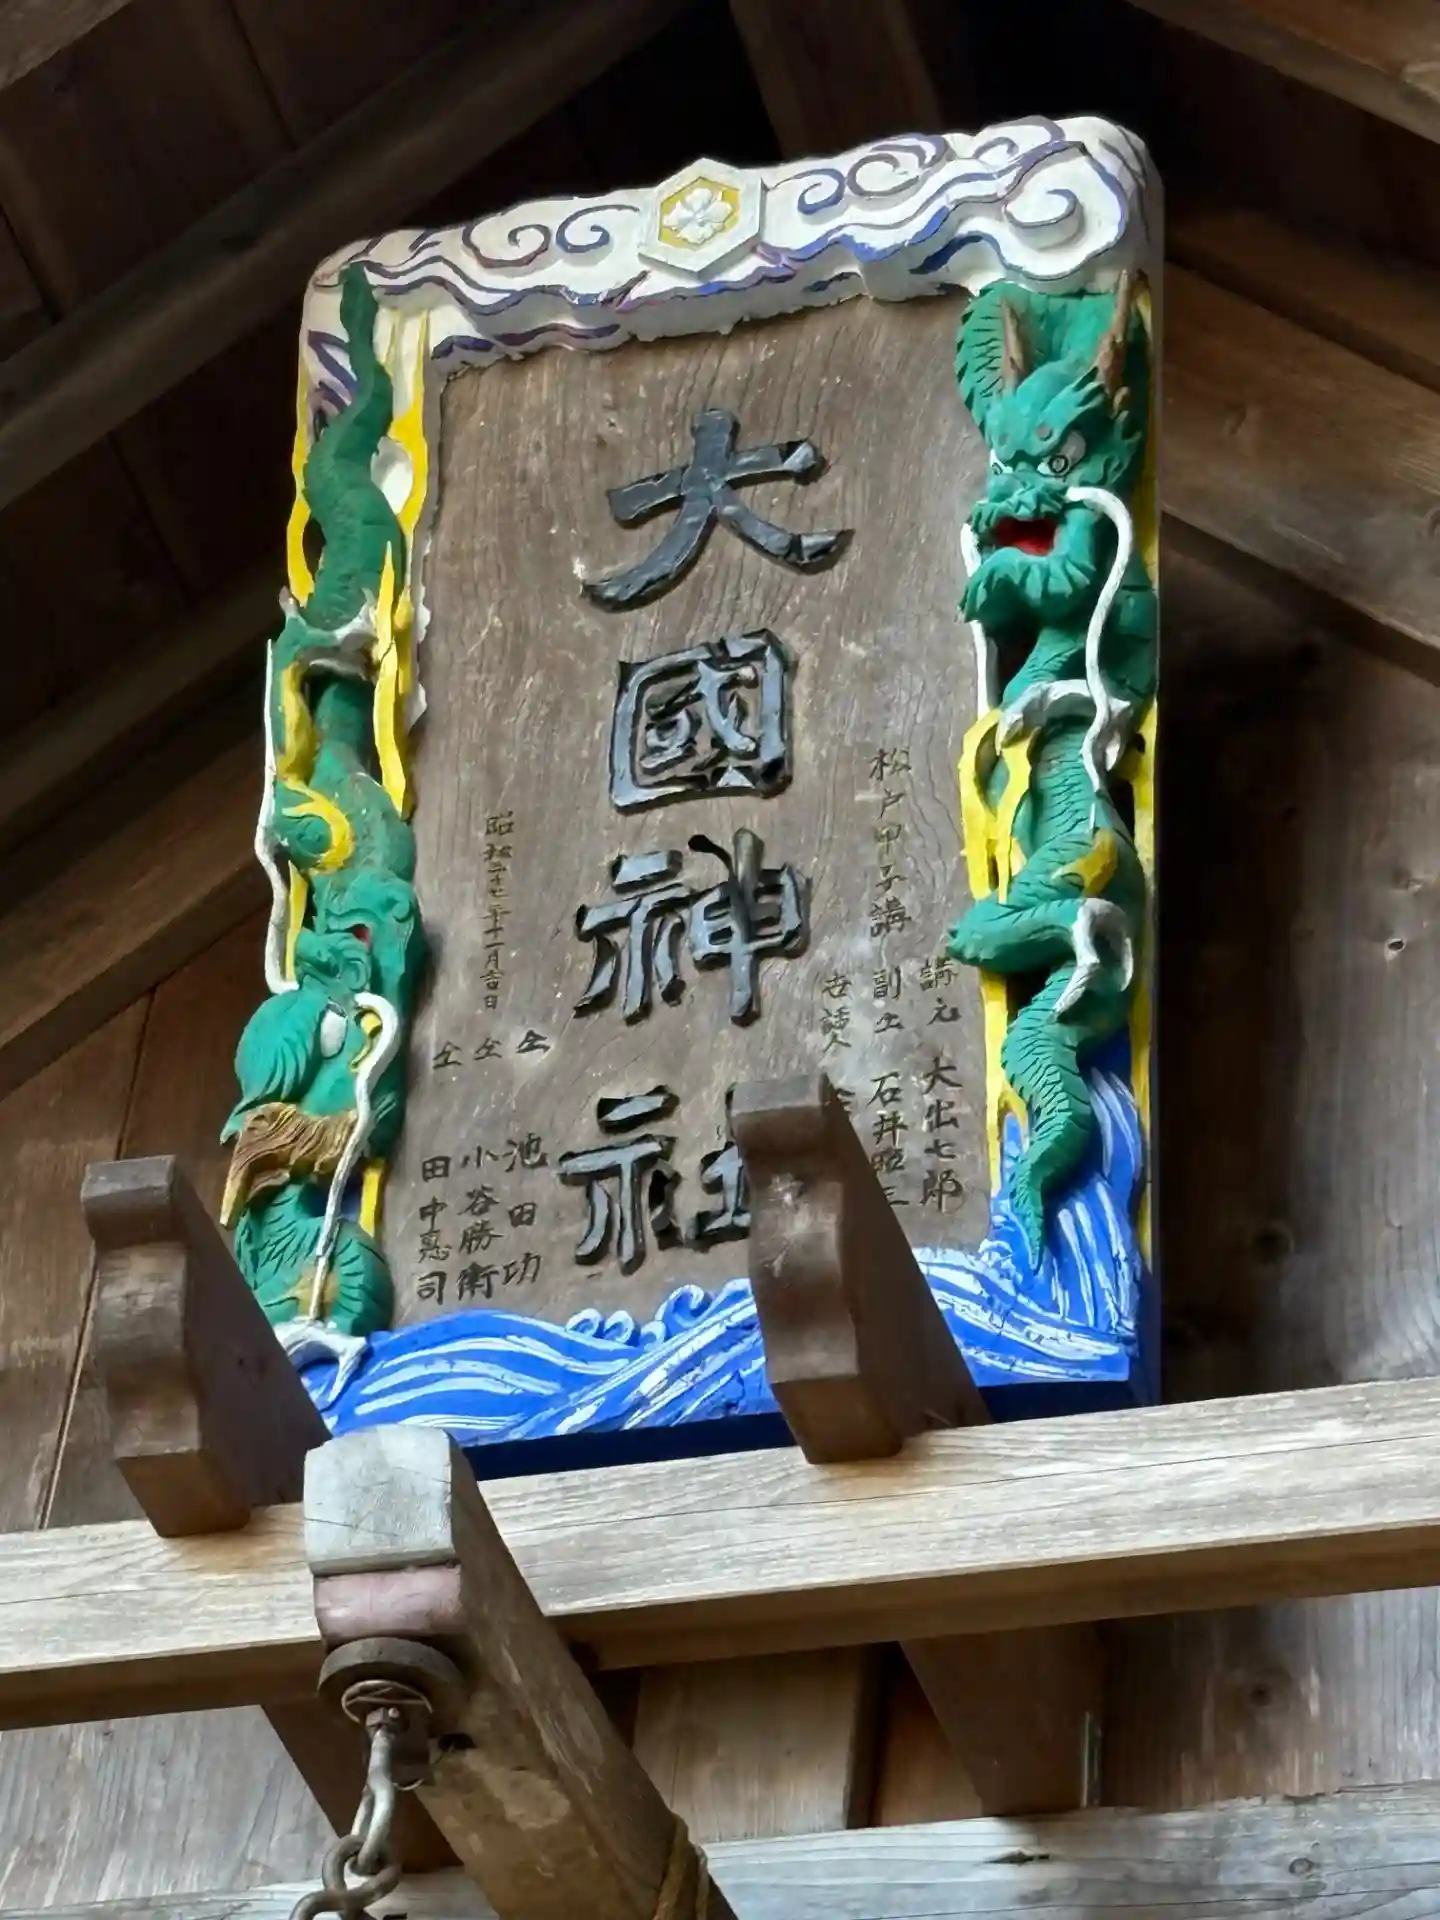 大國神社
松戸甲子講
講元 大出七郎
副〃 石井昭三
世話人 仝
仝 池田功
仝 小谷勝衛
仝 田中惠司
昭和二十七年十一月吉日